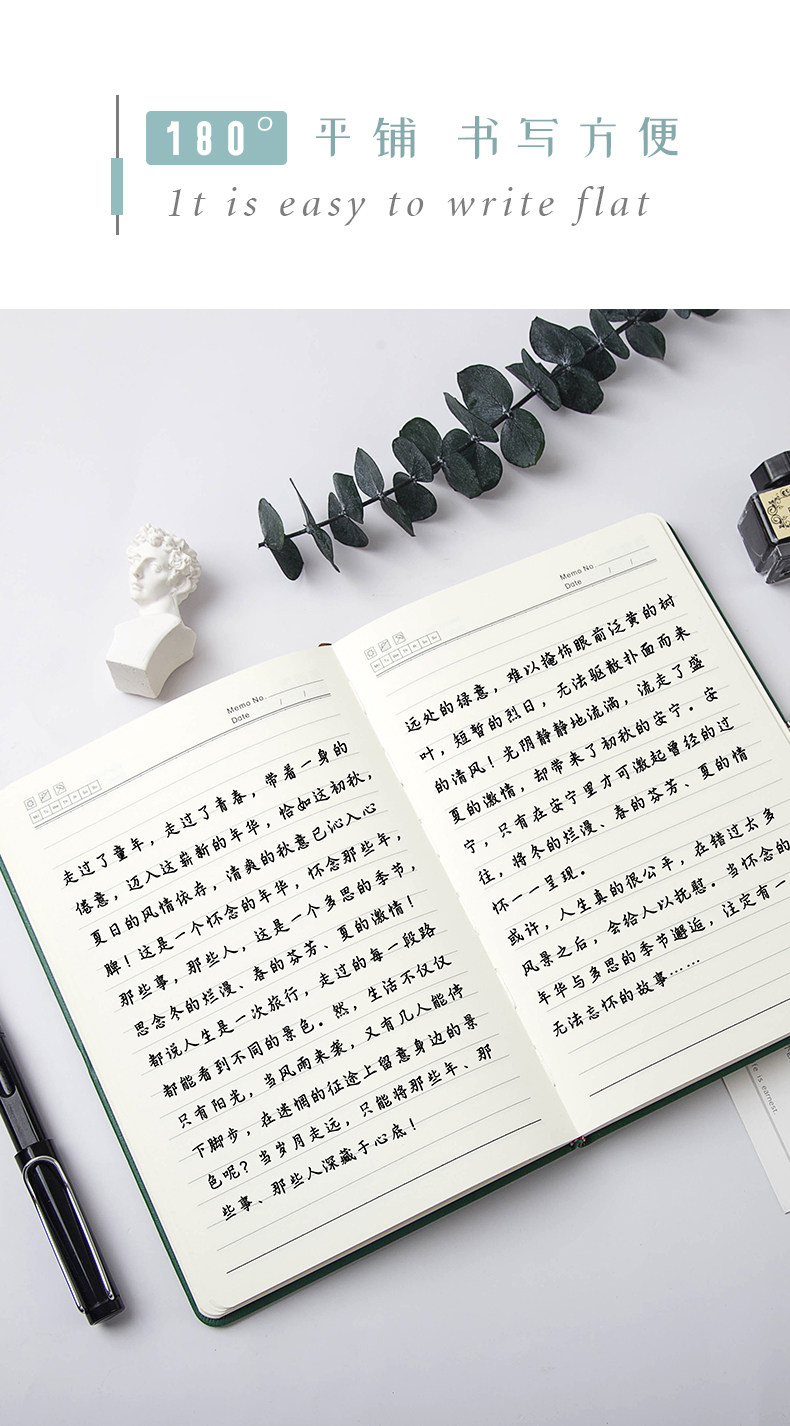 180° 平铺 书写方便
It is easy to write flat
Memo No.
Date / /
走过了童年，走过了青春，带着一身的
倦意，迈入这崭新的年华，恰如这初秋，
夏日的风情依存，清爽的秋意已沁入心
脾！这是一个怀念的年华，怀念那些年，
那些事，那些人，这是一个多思的季节，
思念冬的烂漫、春的芬芳、夏的激情！
都说人生是一次旅行，走过的每一段路
都能看到不同的景色。然，生活不仅仅
只有阳光，当风雨来袭，又有几人能停
下脚步，在迷惘的征途上留意身边的景
色呢？当岁月走远，只能将那些年、那
些事、那些人深藏于心底！
Memo No.
Date / /
远处的绿意，难以掩饰眼前泛黄的树
叶，短暂的烈日，无法驱散扑面而来
的清风！光阴静静地流淌，流走了盛
夏的激情，却带来了初秋的安宁。安
宁，只有在安宁里才可激起曾经的过
往，将冬的烂漫、春的芬芳、夏的情
怀一一呈现。
或许，人生真的很公平，在错过太多
风景之后，会给人以抚慰。当怀念的
年华与多思的季节邂逅，注定有一
无法忘怀的故事……
is earnest